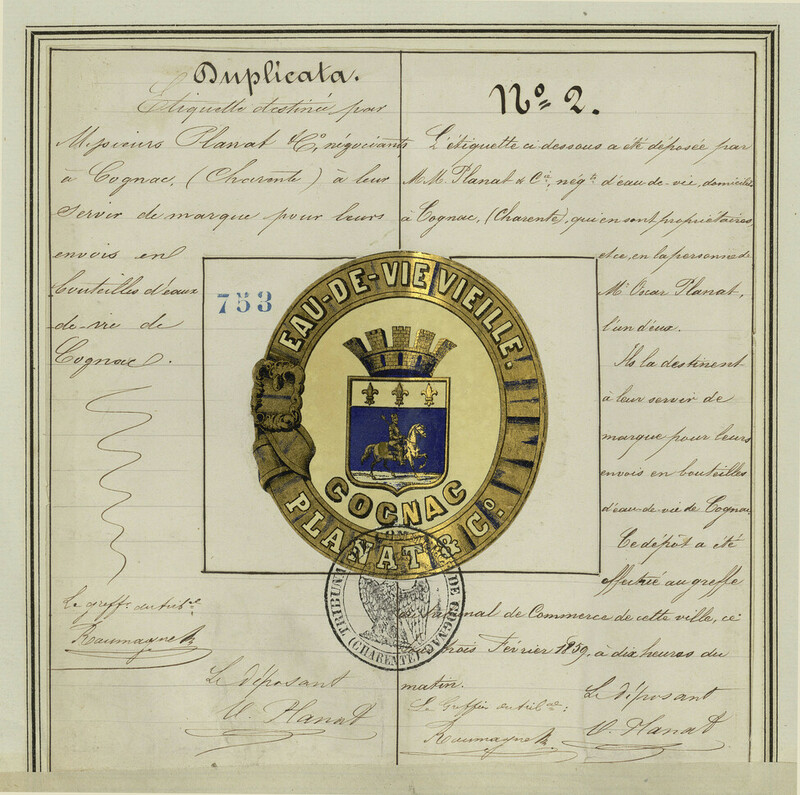 Duplicata.
Etiquette destinée par
Messieurs Planat & Co, négociants
à Cognac, (Charente) à leur
servir de marque pour leurs
envois en
bouteilles d'eaux
de-vie de
Cognac.
Le greff. du trib.al
Le déposant
O. Planat
No 2.
L'étiquette ci dessous a été déposée par
M.M. Planat & Cie, négts d'eau-de-vie, domiciliés
à Cognac, (Charente), qui en sont propriétaires,
et ce, en la personne de
Mr Oscar Planat,
l'un d'eux.
Ils la destinent
à leur servir de
marque pour leurs
envois en bouteilles
d'eau-de-vie de Cognac.
Ce dépôt a été
effectué au greffe
du Tribunal de Commerce de cette ville, ce
trois Février 1859, à dix heures du
matin.
Le Greffier du trib.al:
Le déposant
O. Planat
753
EAU-DE-VIE VIEILLE.
COGNAC
PLANAT & Co.
TRIBUNAL DE COMM DE COGNAC
(CHARENTE)